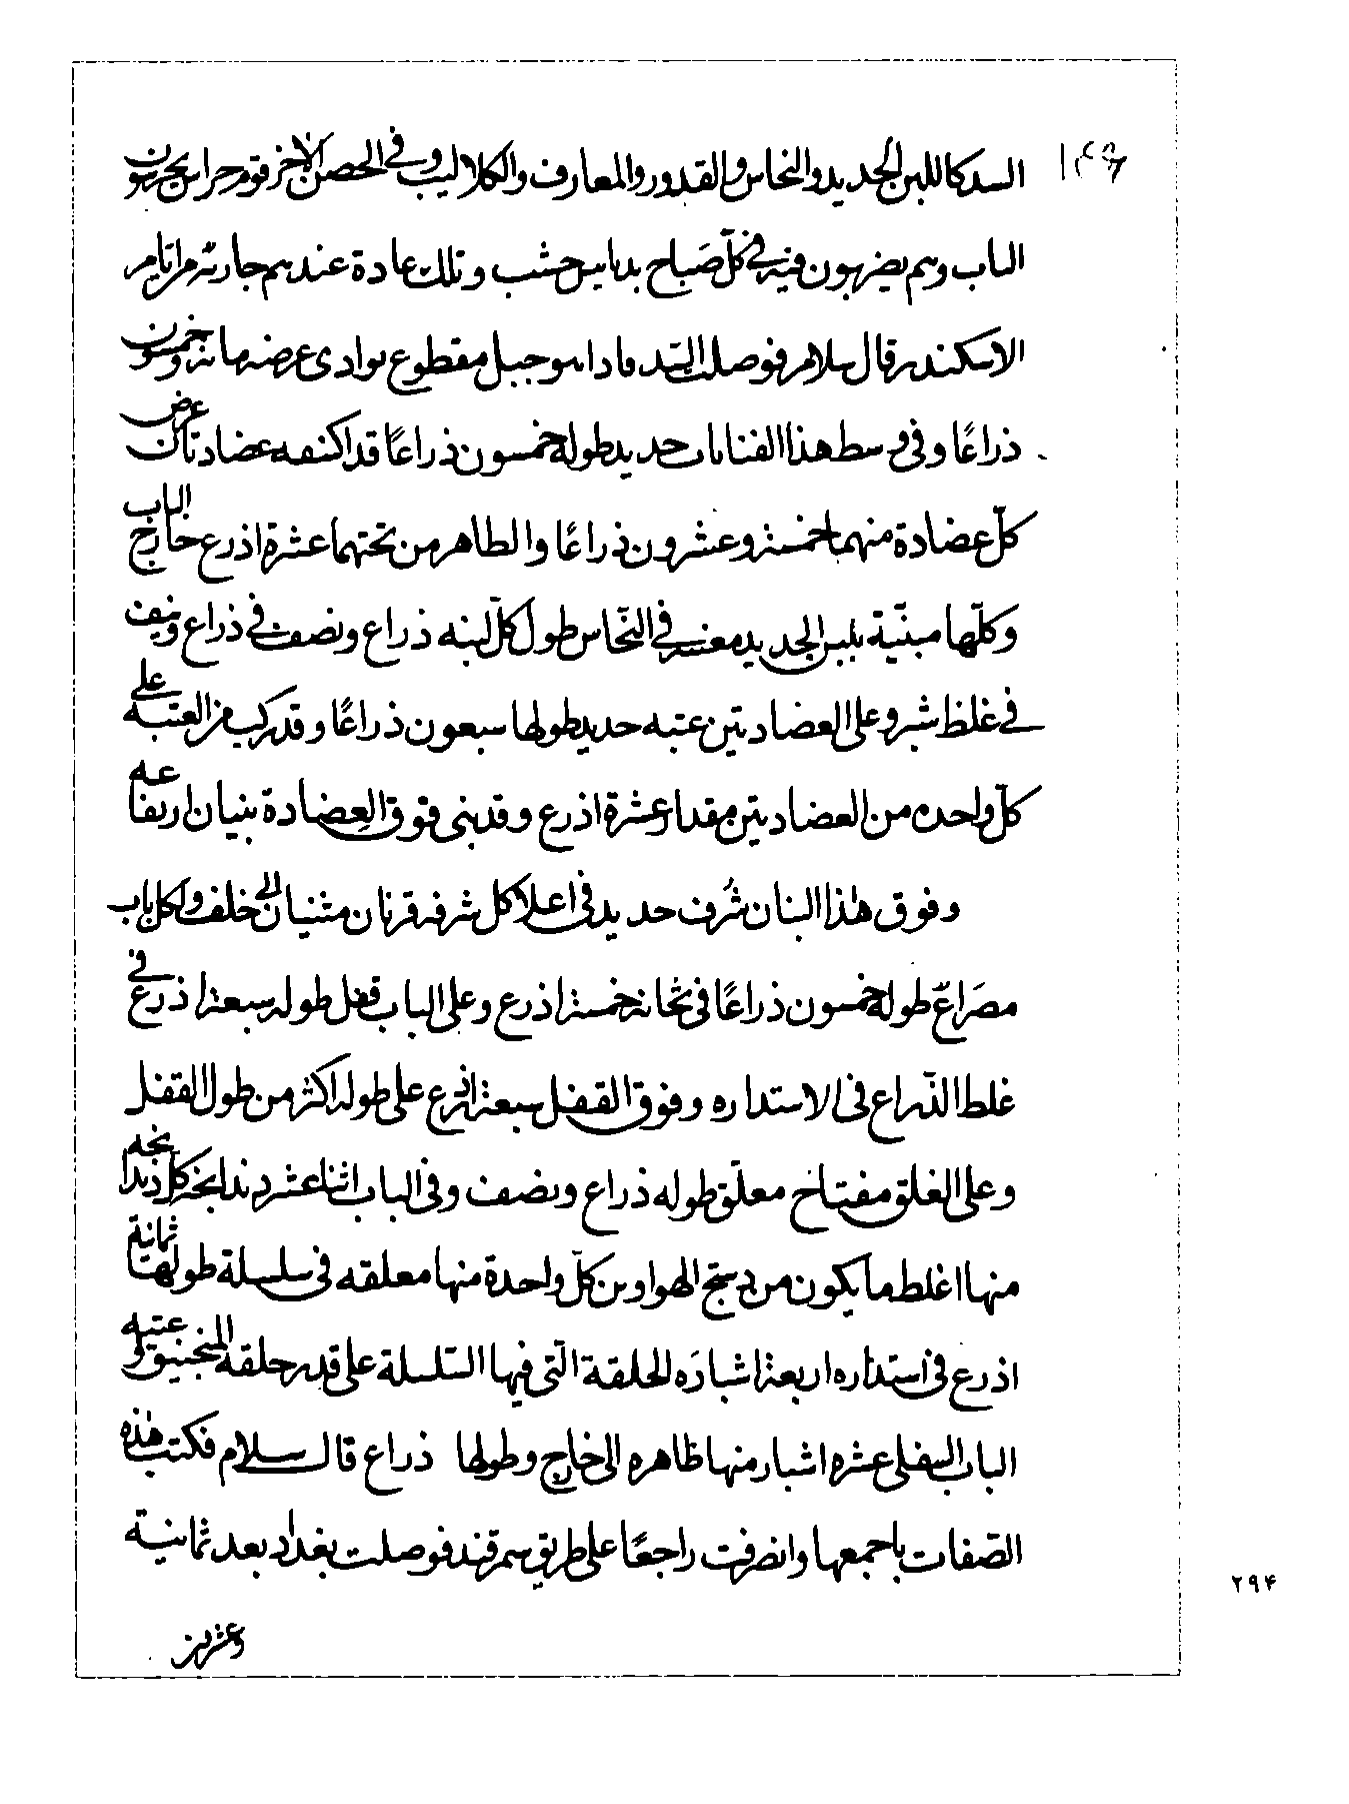 السد كاللبن الحديد والنحاس والقدور والمعارف والكلاليب وفي الحصن الاخر قوم حراس يحرسون
الباب وهم يضربون فيه في كلّ صَباح بدبابيس خشب وتلك عادة عندهم جارية من ايام
الاسكندر قال سلام فوصلت السّد فاذا هو جبل مقطوع بوادى عرضه مائة وخمسون
ذراعًا وفى وسط هذا الفنا باب حديد طوله خمسون ذراعًا قد اكنفه عضادتان عرض
كلّ عضادة منهما خمسة وعشرون ذراعًا والظاهر من تحتهما عشرة اذرع خارج الباب
وكلّها مبنّية بلبن الحديد مغيب في النّحاس طول كلّ لبنه ذراع ونصف في ذراع ونيف
في غلظ شبر وعلى العضادتين عتبه حديد طولها سبعون ذراعًا وقد ركب من العتبه على
كلّ واحده من العضادتين مقدار عشرة اذرع وقد بنى فوق العِضادة بنيان ارتفاعه
وفوق هٰذا البنان شُرف حديد فى اعلا كل شرفه قرنان مثنيان الى خلف ولكل باب
مصَراعٌ طوله خمسون ذراعًا فى ثخانة خمسة اذرع وعلى الباب قفل طوله سبعة اذرع في
غلط الذّراع فى الاستداره وفوق القفل سبعة اذرع على طوله اكثر من طول القفل
وعلى الغلق مفتاح معلّق طوله ذراع ونصف وفى الباب اثنا عشر دندانجه كل دندانجه
منها اغلط ما يكون من دستج الهواوين كلّ واحدة منها معلقه فى سلسلة طولها ثمانية
اذرع فى استداره اربعة اشبارَه الحلقة الّتى فيها السّلسلة على قدر حلقه المنجنيق وعتبه
الباب السفلى عشره اشبار منها ظاهره الى خارج وطولها ذراع قال سلام فكتب هٰذه
الصّفات باجمعها وانصرفت راجعًا على طريق سمرقند فوصلت بغداد بعد ثمانية
وعشرين
۲۹۴